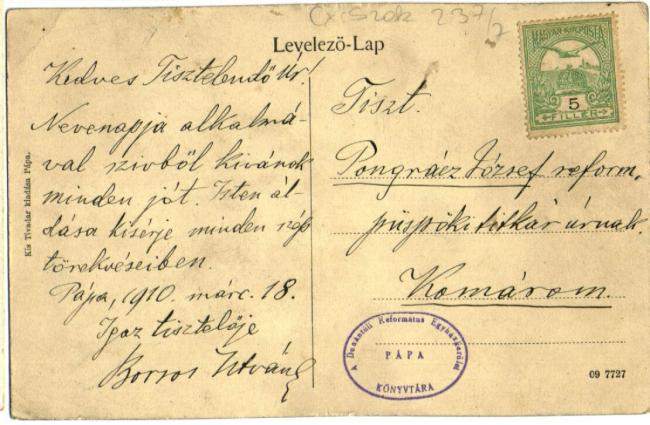 Cx. Szak 237/7
Levelező-Lap
Kedves Tisztelendő Úr!
Nevenapja alkalmá-
val szivből kivánok
minden jót. Isten ál-
dása kisérje minden szép
törekvéseiben.
Pápa, 1910. márc. 18.
Igaz tisztelője
Borsos István
Kis Tivadar kiadása Pápa.
MAGYAR KIR. POSTA
5
FILLÉR
Tiszt.
Pongrácz József reform.
püspöki titkár úrnak.
Komárom.
A Dunántúli Református Egyházkerület
PÁPA
KÖNYVTÁRA
09 7727